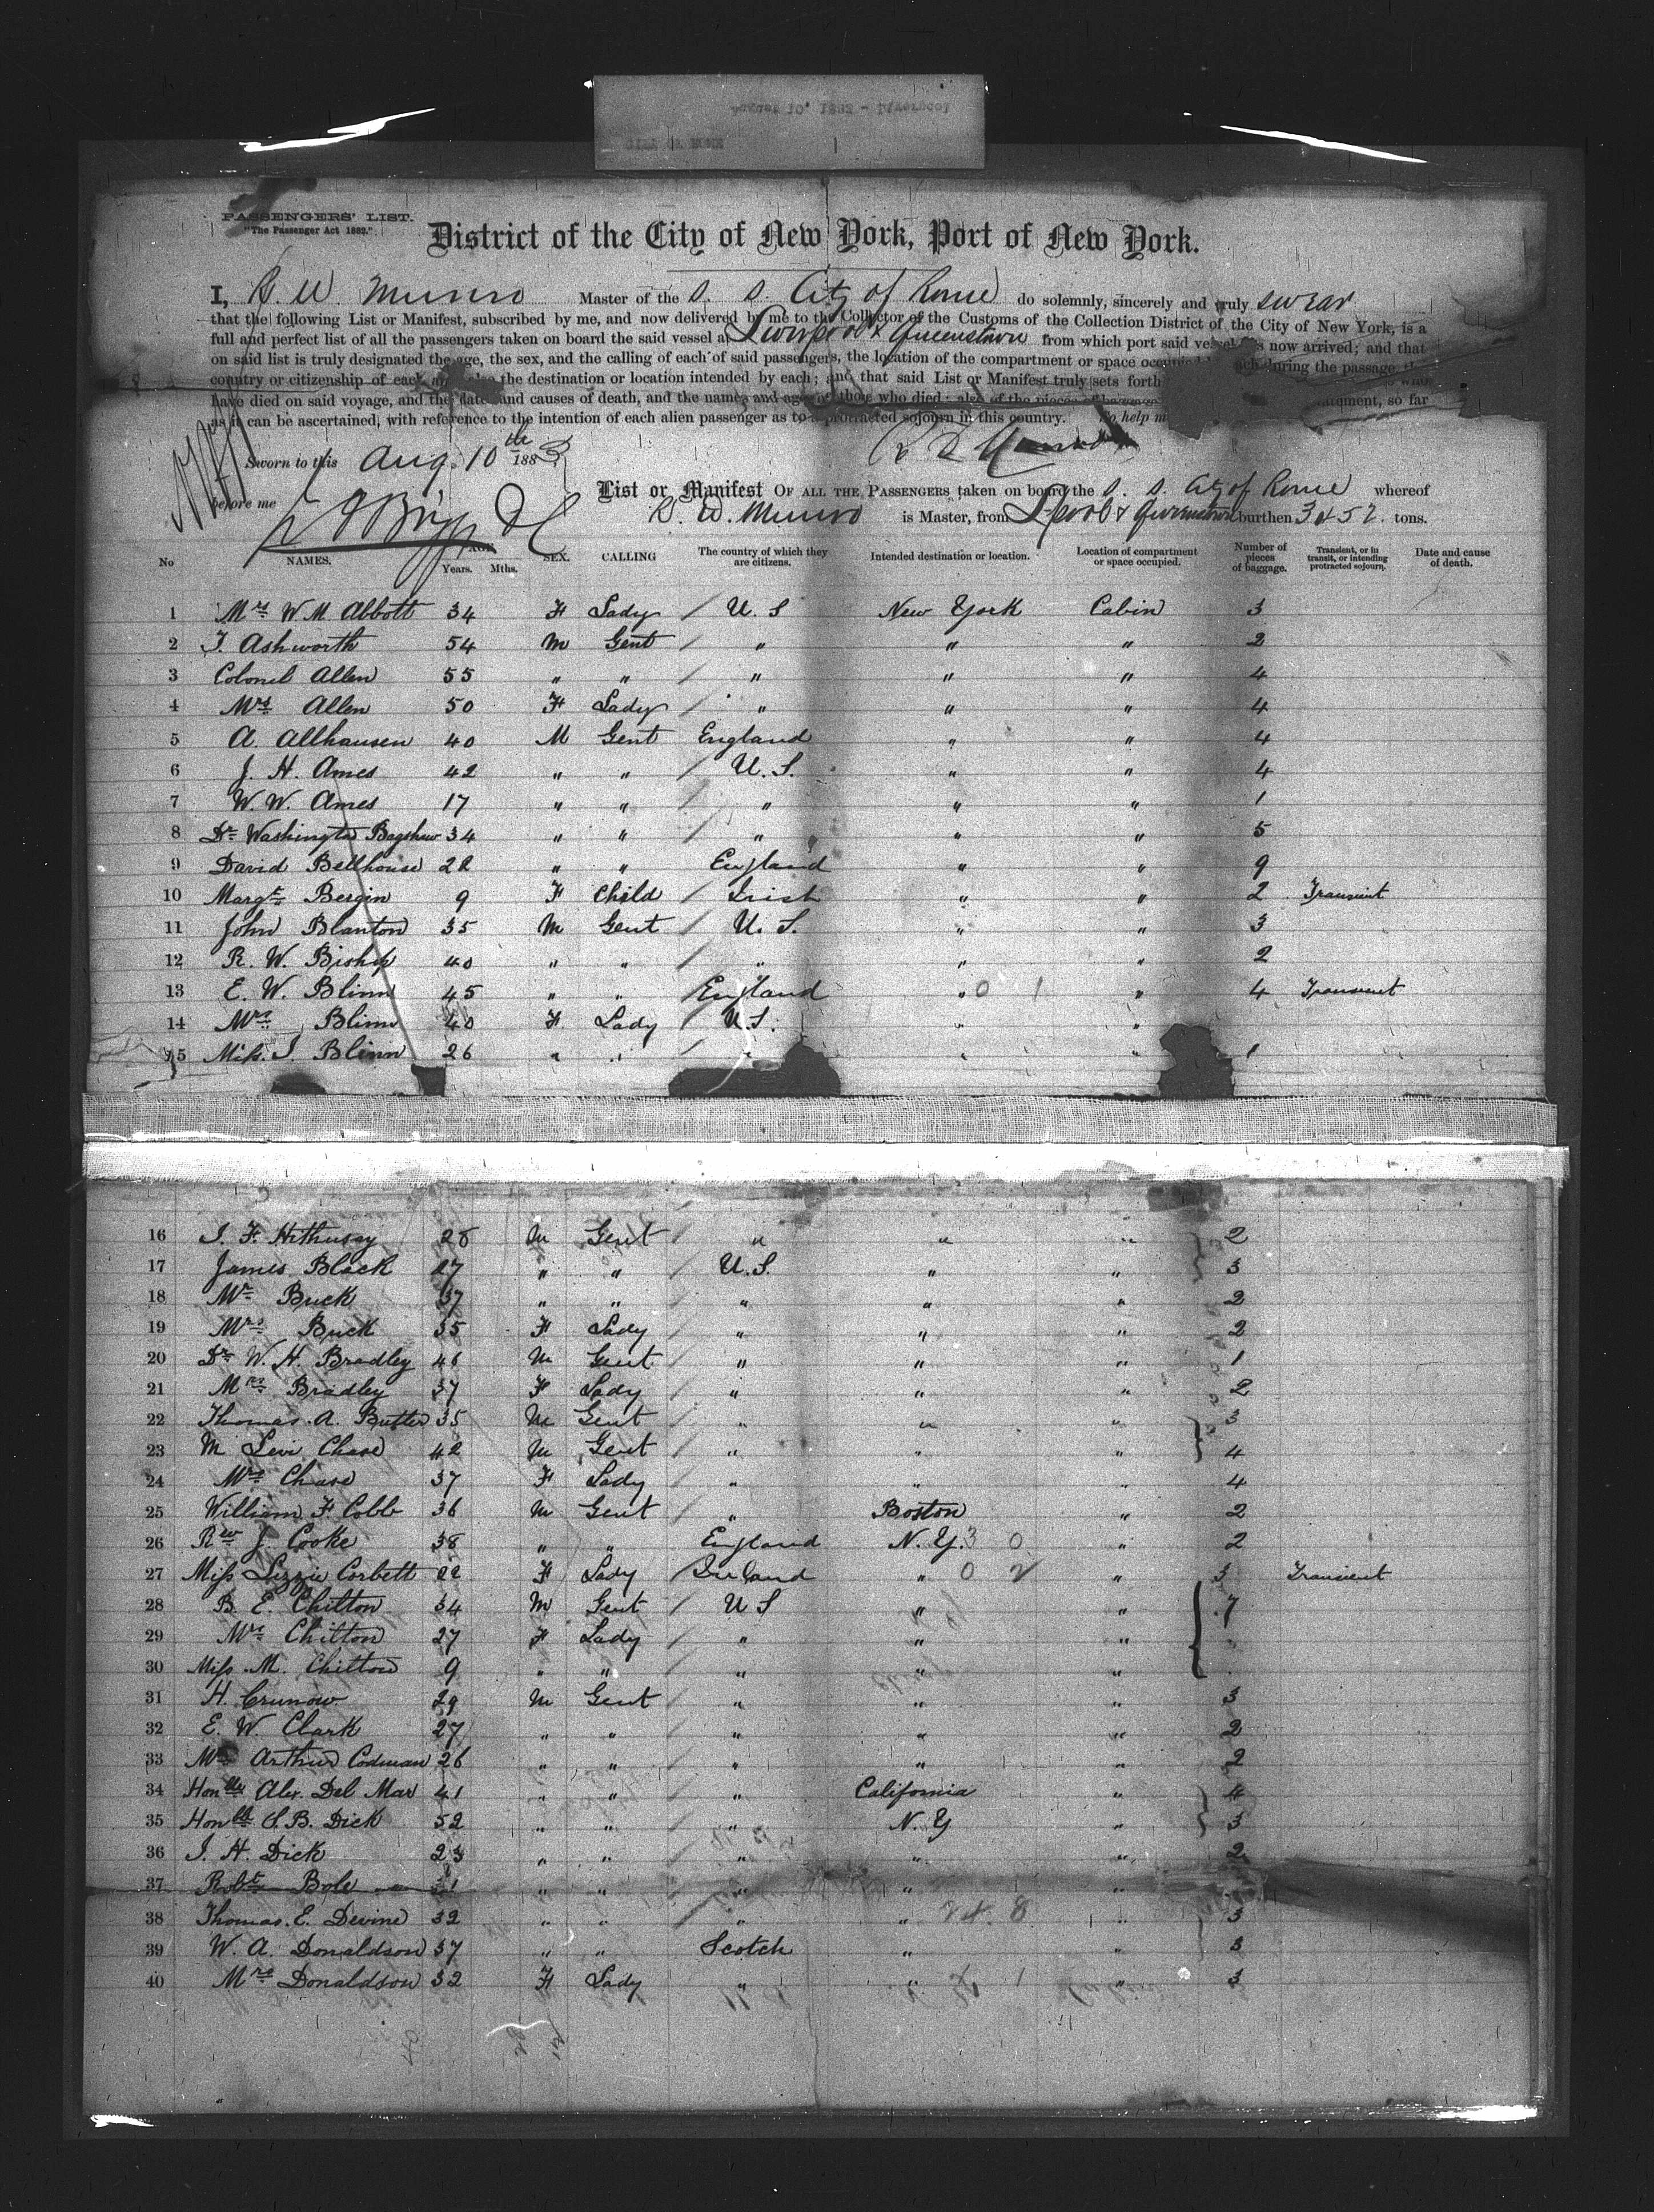 PASSENGERS' LIST.
"The Passenger Act 1882."
District of the City of New York, Port of New York.
I, R. W. Munro Master of the S. S. City of Rome do solemnly, sincerely and truly swear
that the following List or Manifest, subscribed by me, and now delivered by me to the Collector of the Customs of the Collection District of the City of New York, is a
full and perfect list of all the passengers taken on board the said vessel at Liverpool & Queenstown from which port said vessel has now arrived; and that
on said list is truly designated the age, the sex, and the calling of each of said passengers, the location of the compartment or space occupied by each during the passage the
country or citizenship of each, and also the destination or location intended by each; and that said List or Manifest truly sets forth
have died on said voyage, and the date and causes of death, and the names and ages of those who died; also of the pieces of baggage statement, so far
as it can be ascertained, with reference to the intention of each alien passenger as to a protracted sojourn in this country. So help m
R W Munro
Sworn to this Aug. 10th 1883
before me
List or Manifest OF ALL THE PASSENGERS taken on board the S. S. City of Rome whereof
R. W. Munro is Master, from Lpool & Queenstown burthen 3457 tons.
No NAMES. AGE. Years. Mths. SEX. CALLING The country of which they are citizens. Intended destination or location. Location of compartment or space occupied. Number of pieces of baggage. Transient, or in transit, or intending protracted sojourn. Date and cause of death.
1 Mrs W. M. Abbott 34 F Lady / U. S New York Cabin 3
2 J. Ashworth 54 M Gent / " " " 2
3 Colonel Allen 55 " " / " " " 4
4 Mrs Allen 50 F Lady / " " " 4
5 A. Allhausen 40 M Gent England " " 4
6 J. H. Ames 42 " " / U. S. " " 4
7 W. W. Ames 17 " " / " " " 1
8 Dr Washington Bagshaw 34 " " / " " " 5
9 David Bellhouse 22 " " England " " 9
10 Margt Bergin 9 F Child / Irish " " 2 Transient
11 John Blanton 35 M Gent / U. S. " " 3
12 R. W. Bishop 40 " " / " " " 2
13 E. W. Blinn 45 " " / England " 0 1 " 4 Transient
14 Mrs Blinn 40 F Lady / U. S. " "
15 Miss J. Blinn 26 " " / " " " 1
16 J. F. Hethusey 28 M Gent / " " " 2
17 James Black 27 " " / U. S. " " 3
18 Mr Buck 37 " " / " " " 2
19 Mrs Buck 35 F Lady / " " " 2
20 Dr W. H. Bradley 46 M Gent / " " " 1
21 Mrs Bradley 37 F Lady / " " " 2
22 Thomas A. Butler 35 M Gent / " " " 3
23 M Levi Chase 42 M Gent / " " " 4
24 Mrs Chase 37 F Lady / " " " 4
25 William F Cobb 36 M Gent / " Boston " 2
26 Rev J. Cooke 38 " " England N. Y. 3 0 " 2
27 Miss Lizzie Corbett 22 F Lady / Ireland " 0 2 " 3 Transient
28 B. E. Chilton 34 M Gent / U S " " 7
29 Mrs Chilton 27 F Lady / " " "
30 Miss M. Chilton 9 " " / " " "
31 H. Crunow 29 M Gent / " " " 3
32 E. W. Clark 27 " " / " " " 2
33 Mr Arthur Codman 26 " " / " " " 2
34 Honble Alex. Del Mar 41 " " / " California " 4
35 Honble S. B. Dick 52 " " / " N. Y " 3
36 J. H. Dick 23 " " / " " " 2
37 Robt Bole " " / " " "
38 Thomas. E. Devine 32 " " / " " " 3
39 W. A. Donaldson 37 " " Scotch " " 3
40 Mrs Donaldson 32 F Lady " " " 3